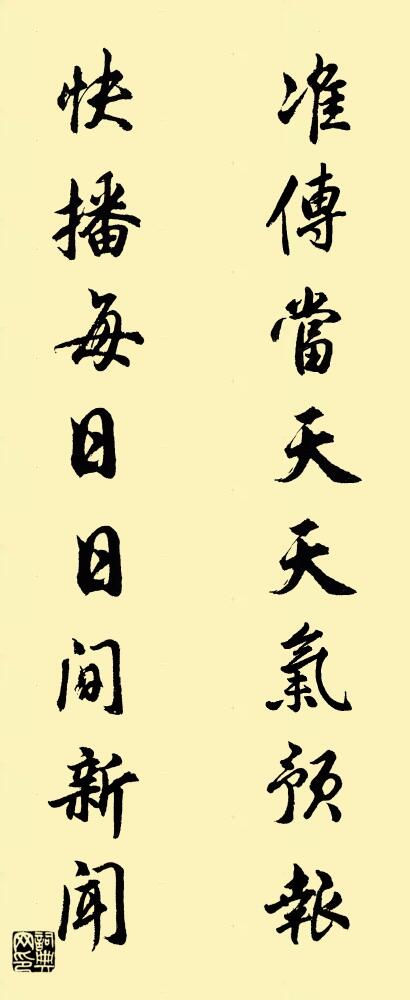 准傳當天天氣預報
快播每日日间新聞
詞典网印